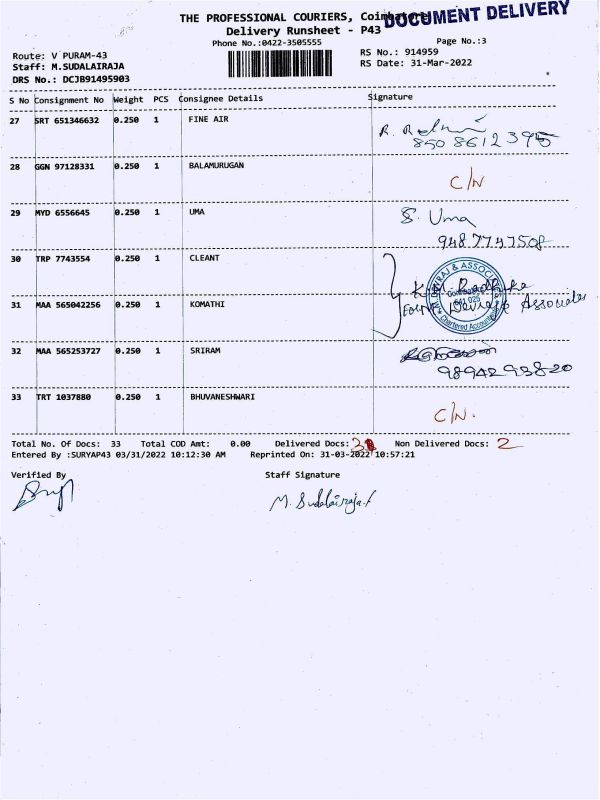 DOCUMENT DELIVERY
THE PROFESSIONAL COURIERS, Coimbatore
Delivery Runsheet - P43
Phone No.:0422-3505555
Page No.:3
Route: V PURAM-43
RS No.: 914959
Staff: M.SUDALAIRAJA
RS Date: 31-Mar-2022
DRS No.: DCJB91495903
S No Consignment No Weight PCS Consignee Details Signature
27 SRT 651346632 0.250 1 FINE AIR
8508612395
28 GGN 97128331 0.250 1 BALAMURUGAN C/N
29 MYD 6556645 0.250 1 UMA S. Uma
30 TRP 7743554 0.250 1 CLEANT
31 MAA 565042256 0.250 1 KOMATHI
Associates
Chartered Accountants
32 MAA 565253727 0.250 1 SRIRAM
33 TRT 1037880 0.250 1 BHUVANESHWARI C/N.
Total No. Of Docs: 33 Total COD Amt: 0.00 Delivered Docs: 31 Non Delivered Docs: 2
Entered By :SURYAP43 03/31/2022 10:12:30 AM Reprinted On: 31-03-2022 10:57:21
Verified By Staff Signature
M. Sudalairaja